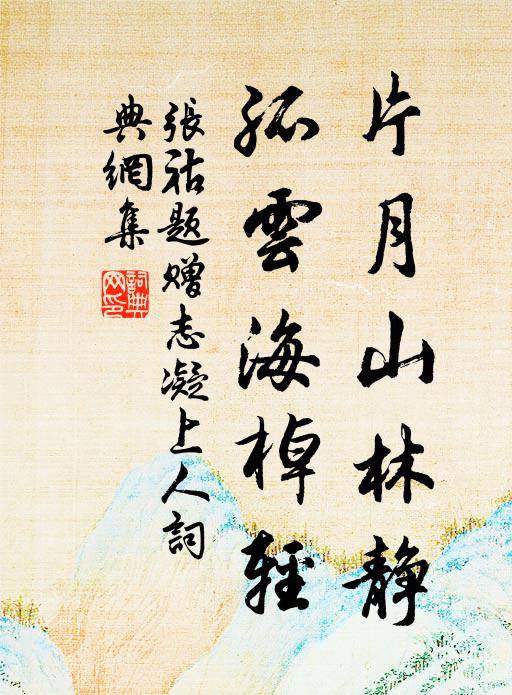 片月山林静
孤雲海棹輕
張祜題贈志凝上人詞
典網集
詞典
网印